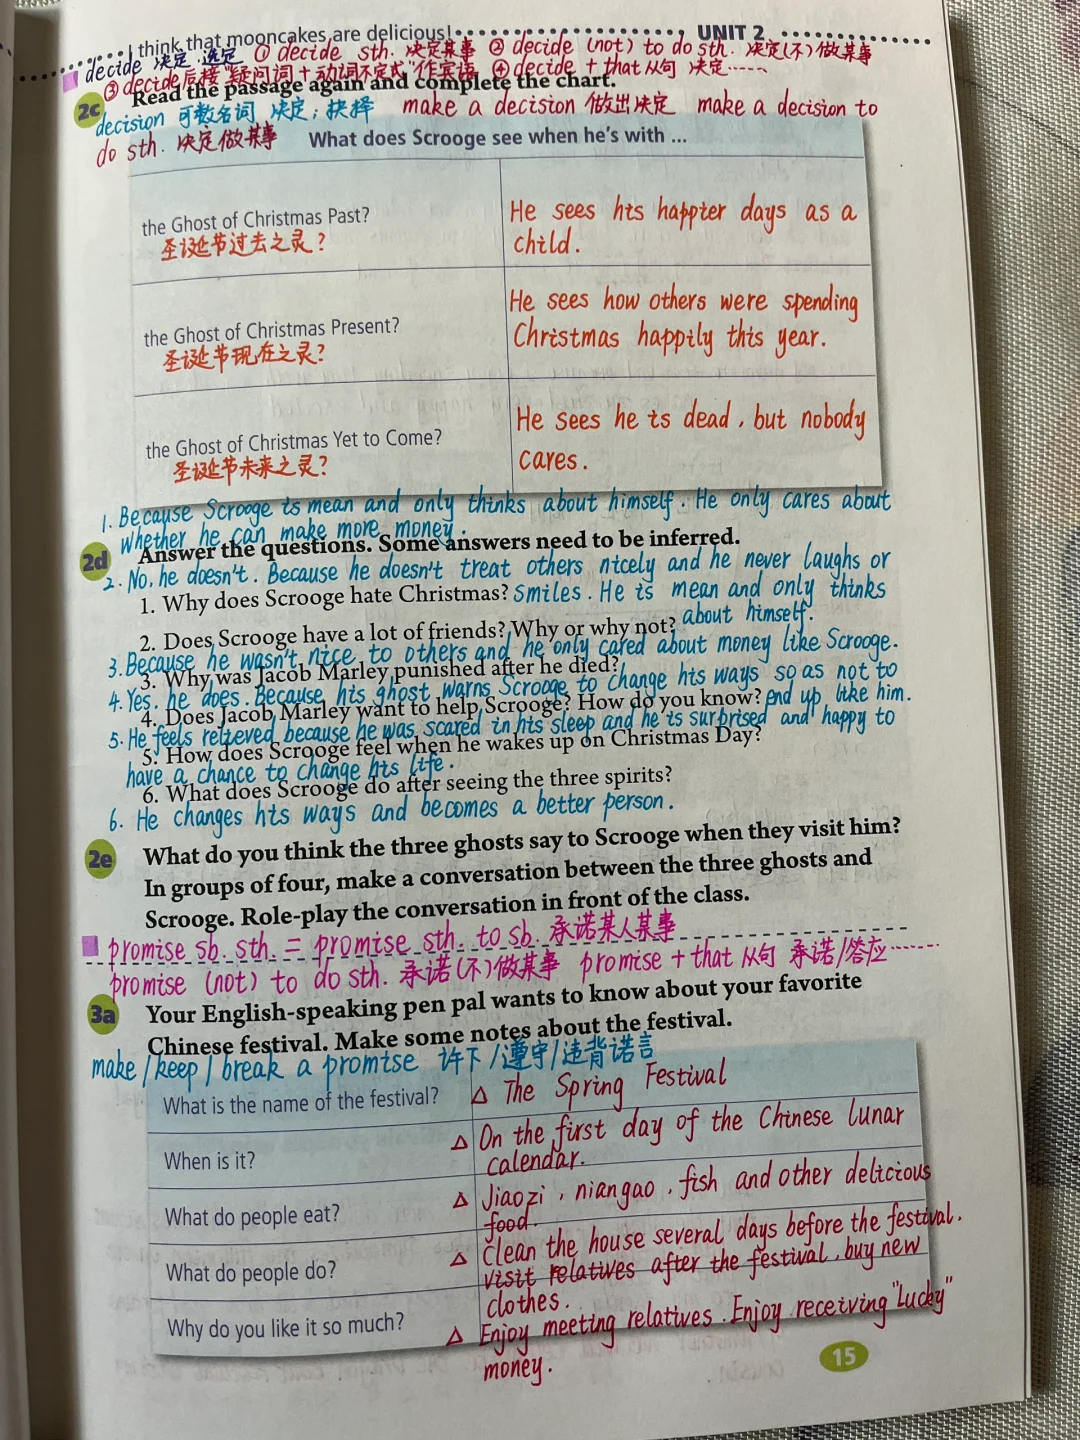 I think that mooncakes are delicious!
UNIT 2
decide 决定.选定 ① decide sth. 决定某事 ② decide (not) to do sth. 决定(不)做某事
③ decide后接"疑问词+动词不定式"作宾语 ④ decide + that从句 决定……
2c Read the passage again and complete the chart.
decision 可数名词 决定;抉择 make a decision 做出决定 make a decision to
do sth. 决定做某事
What does Scrooge see when he's with ...
the Ghost of Christmas Past?
圣诞节过去之灵?
He sees his happier days as a
child.
the Ghost of Christmas Present?
圣诞节现在之灵?
He sees how others were spending
Christmas happily this year.
the Ghost of Christmas Yet to Come?
圣诞节未来之灵?
He sees he is dead, but nobody
cares.
1. Because Scrooge is mean and only thinks about himself. He only cares about
whether he can make more money.
2d Answer the questions. Some answers need to be inferred.
2. No, he doesn't. Because he doesn't treat others nicely and he never laughs or
1. Why does Scrooge hate Christmas? smiles. He is mean and only thinks
about himself.
2. Does Scrooge have a lot of friends? Why or why not?
3. Because he wasn't nice to others and he only cared about money like Scrooge.
3. Why was Jacob Marley punished after he died?
4. Yes, he does. Because his ghost warns Scrooge to change his ways so as not to
4. Does Jacob Marley want to help Scrooge? How do you know? end up like him.
5. He feels relieved because he was scared in his sleep and he is surprised and happy to
5. How does Scrooge feel when he wakes up on Christmas Day?
have a chance to change his life.
6. What does Scrooge do after seeing the three spirits?
6. He changes his ways and becomes a better person.
2e What do you think the three ghosts say to Scrooge when they visit him?
In groups of four, make a conversation between the three ghosts and
Scrooge. Role-play the conversation in front of the class.
promise sb. sth. = promise sth. to sb. 承诺某人某事
promise (not) to do sth. 承诺(不)做某事 promise + that 从句 承诺/答应……
3a Your English-speaking pen pal wants to know about your favorite
Chinese festival. Make some notes about the festival.
make/keep/break a promise 许下/遵守/违背诺言
What is the name of the festival? △ The Spring Festival
When is it? △ On the first day of the Chinese lunar
calendar.
What do people eat? △ Jiaozi, niangao, fish and other delicious
food.
What do people do? △ Clean the house several days before the festival.
visit relatives after the festival, buy new
clothes.
Why do you like it so much? △ Enjoy meeting relatives. Enjoy receiving "Lucky"
money.
15